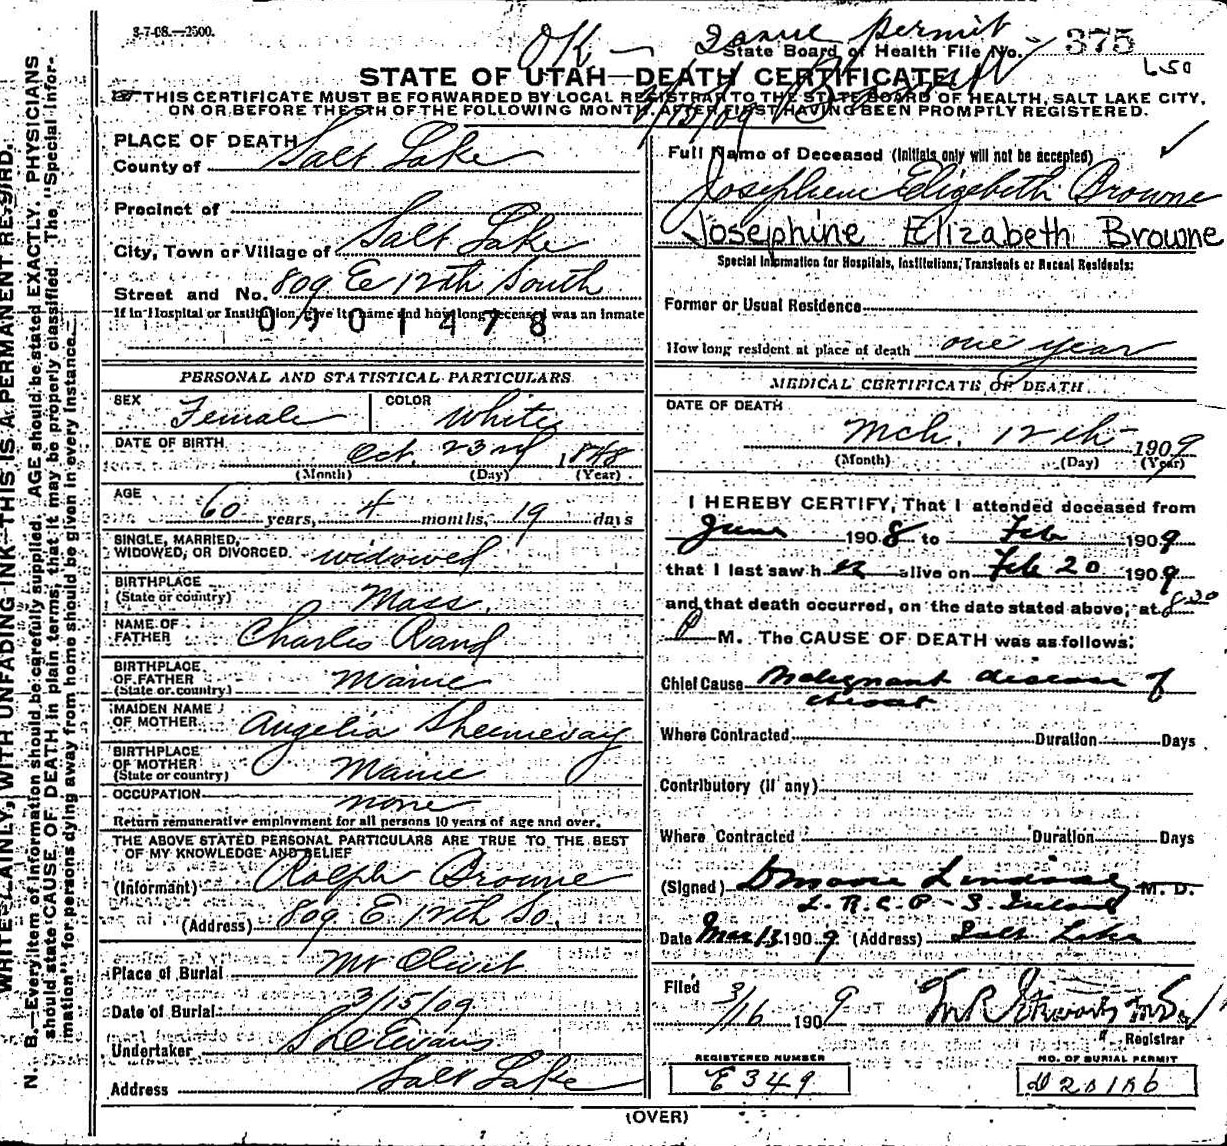 3-7-08.—2500.
OK — Issue permit
State Board of Health File No. 375
650
STATE OF UTAH—DEATH CERTIFICATE
THIS CERTIFICATE MUST BE FORWARDED BY LOCAL REGISTRAR TO THE STATE BOARD OF HEALTH, SALT LAKE CITY,
ON OR BEFORE THE 5TH OF THE FOLLOWING MONTH, AFTER FIRST HAVING BEEN PROMPTLY REGISTERED.
WRITE PLAINLY, WITH UNFADING INK—THIS IS A PERMANENT RECORD.
N. B.—Every item of information should be carefully supplied. AGE should be stated EXACTLY. PHYSICIANS
should state CAUSE OF DEATH in plain terms, that it may be properly classified. The "Special Infor-
mation" for persons dying away from home should be given in every instance.
PLACE OF DEATH
County of Salt Lake
Precinct of
City, Town or Village of Salt Lake
Street and No. 809 E 12th South
If in Hospital or Institution, give its name and how long deceased was an inmate
0901478
PERSONAL AND STATISTICAL PARTICULARS
SEX Female COLOR White
DATE OF BIRTH Oct. 23rd, 1848
(Month) (Day) (Year)
AGE 60 years, 4 months, 19 days
SINGLE, MARRIED,
WIDOWED, OR DIVORCED. widowed
BIRTHPLACE
(State or country) Mass.
NAME OF
FATHER Charles Rand
BIRTHPLACE
OF FATHER
(State or country) Maine
MAIDEN NAME
OF MOTHER Angelia
BIRTHPLACE
OF MOTHER
(State or country) Maine
OCCUPATION none
Return remunerative employment for all persons 10 years of age and over.
THE ABOVE STATED PERSONAL PARTICULARS ARE TRUE TO THE BEST
OF MY KNOWLEDGE AND BELIEF
(Informant) Ralph Browne
(Address) 809 E 12th So.
Place of Burial Mt Olivet
Date of Burial 3/15/09
Undertaker Evans
Address Salt Lake
Full Name of Deceased (Initials only will not be accepted)
Josephene Elizabeth Browne
Josephine Elizabeth Browne
Special Information for Hospitals, Institutions, Transients or Recent Residents:
Former or Usual Residence
How long resident at place of death one year
MEDICAL CERTIFICATE OF DEATH
DATE OF DEATH
Mch. 12th 1909
(Month) (Day) (Year)
I HEREBY CERTIFY, That I attended deceased from
June 1908 to Feb 1909
that I last saw her alive on Feb 20 1909
and that death occurred, on the date stated above, at 8:30
P M. The CAUSE OF DEATH was as follows:
Chief Cause Malignant disease of
throat
Where Contracted Duration Days
Contributory (if any)
Where Contracted Duration Days
(Signed) D Moore Lindsay M. D.
L. R. C. P. - S. Ireland
Date Mar 13 1909 (Address) Salt Lake
Filed 3/16 1909
Registrar
REGISTERED NUMBER
E349
NO. OF BURIAL PERMIT
(OVER)